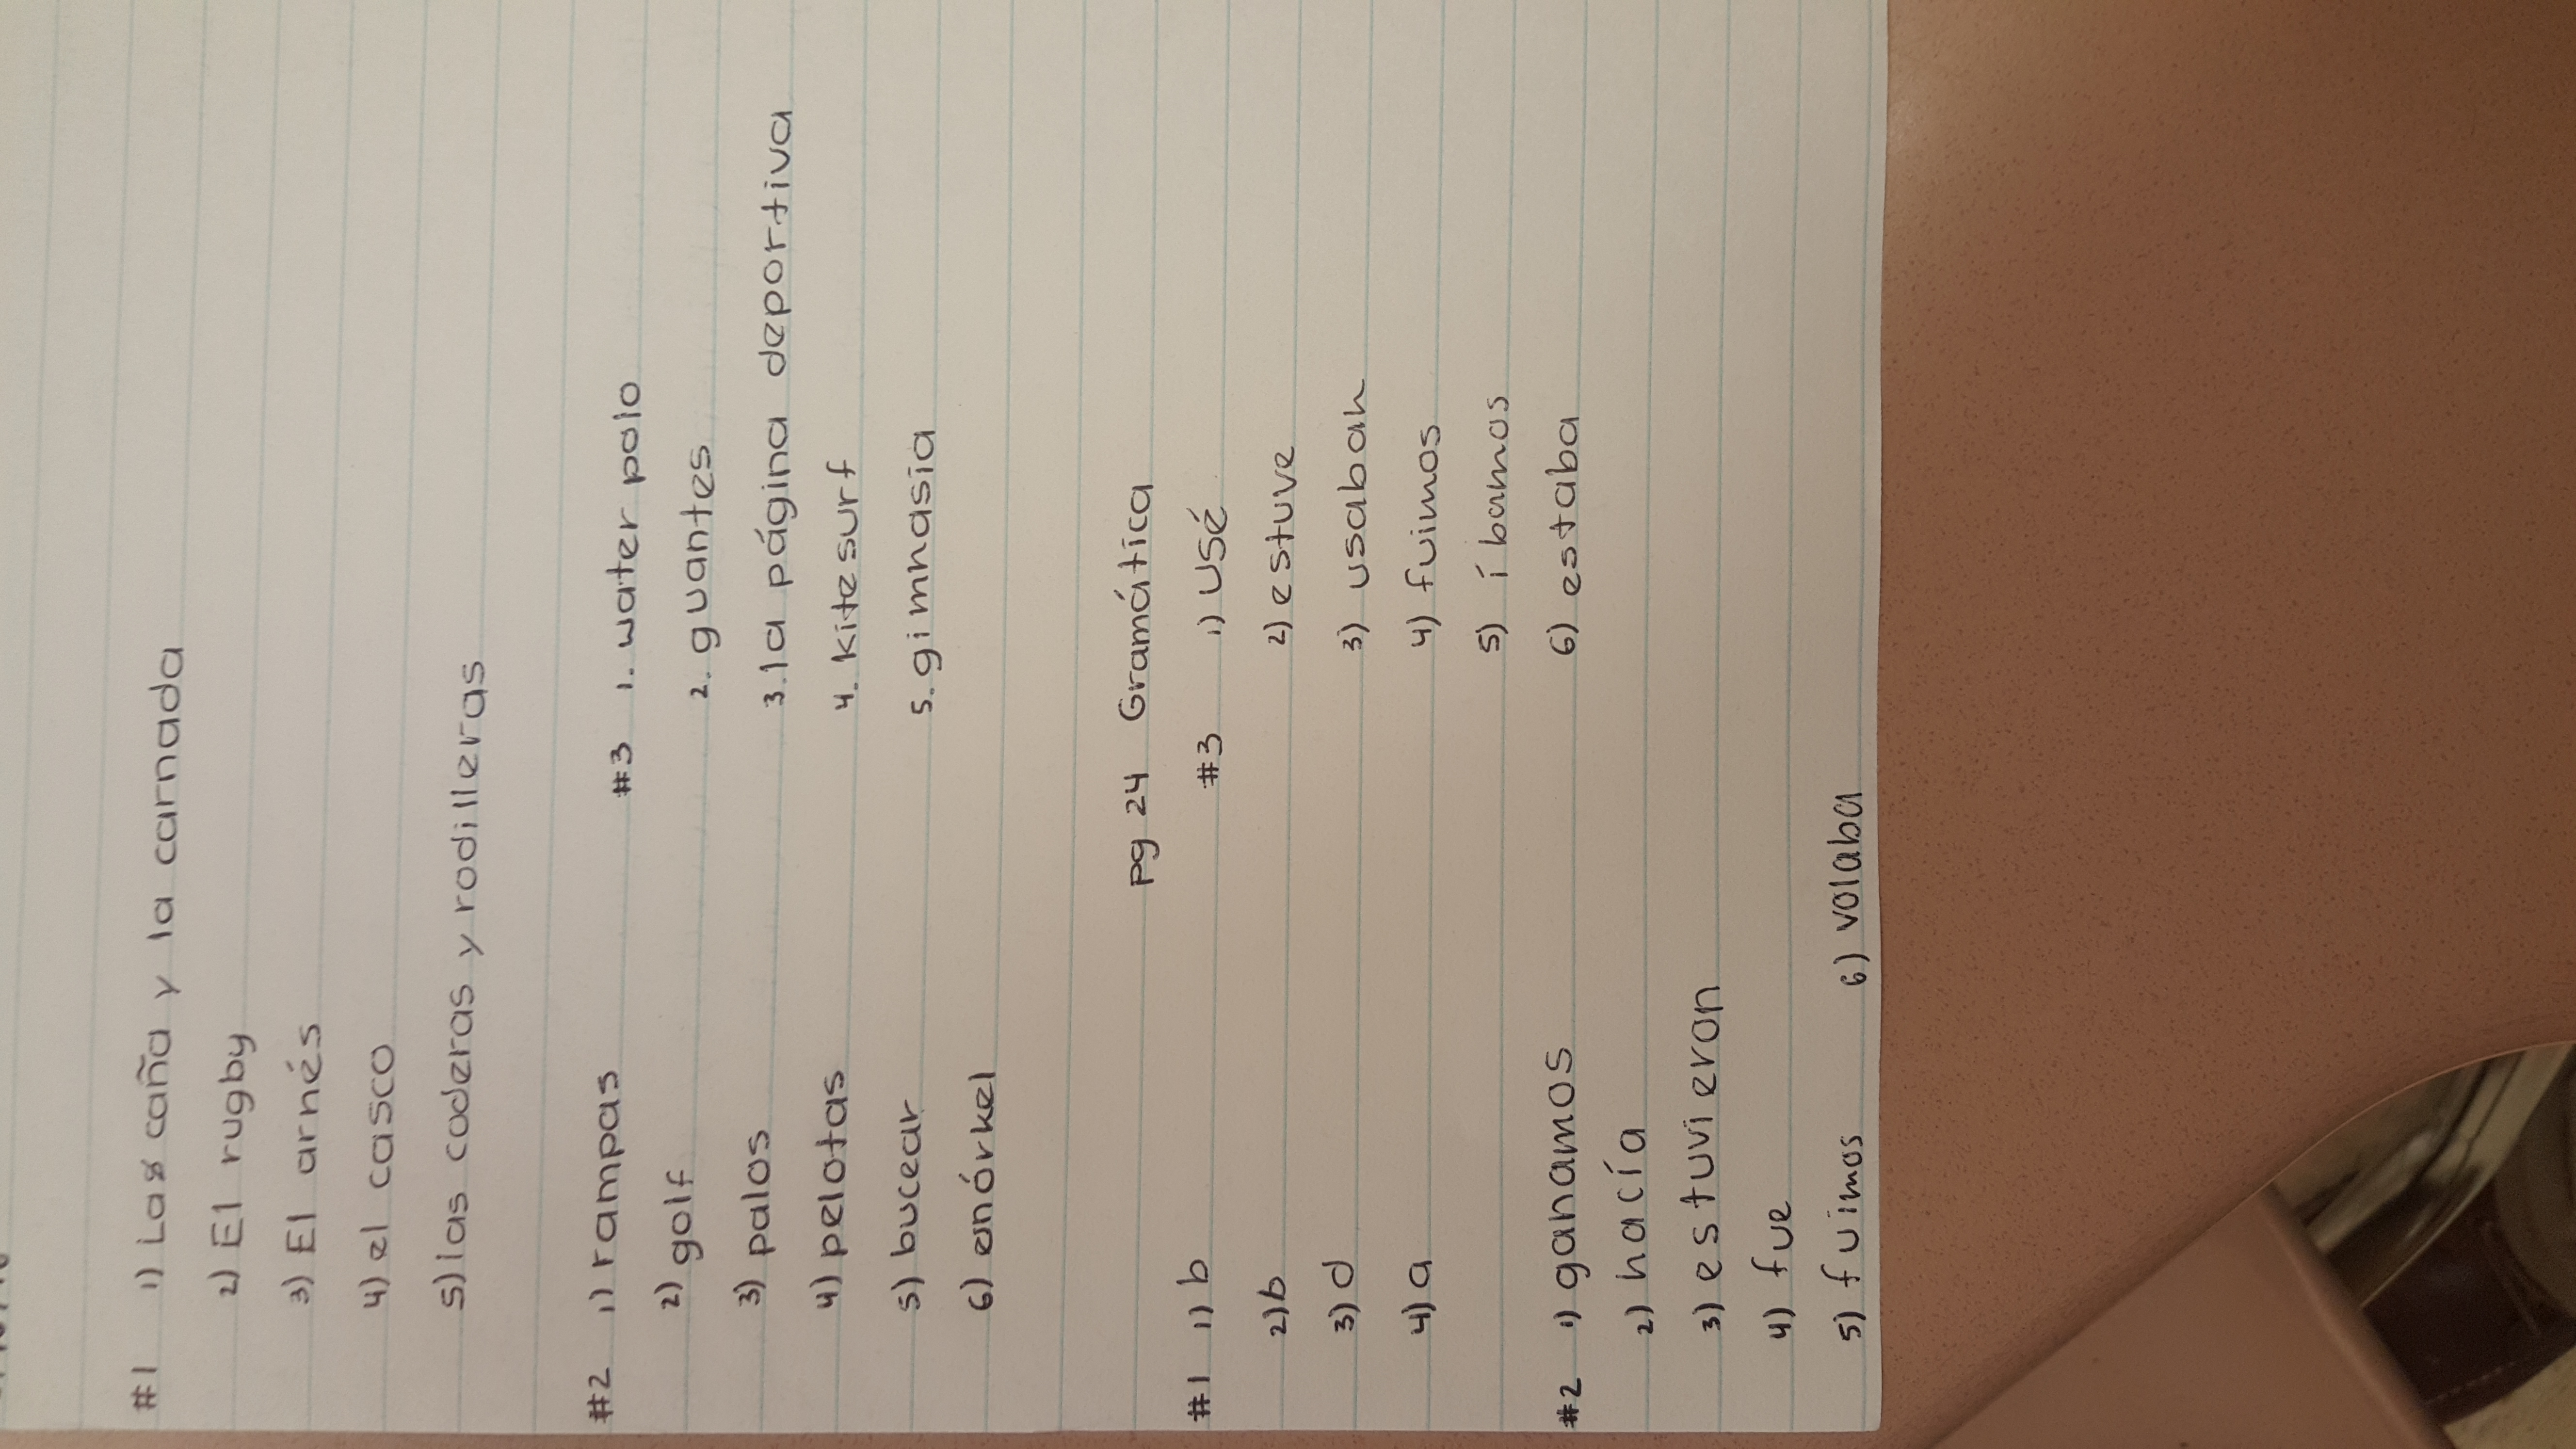 #1 1) La caña y la carnada
2) El rugby
3) El arnés
4) el casco
5) las coderas y rodilleras
#2 1) rampas
2) golf
3) palos
4) pelotas
5) bucear
6) enórkel
#3 1. water polo
2. guantes
3. la página deportiva
4. kitesurf
5. gimnasia
pg 24 Gramática
#1 1) b
2) b
3) d
4) a
#2 1) ganamos
2) hacía
3) estuvieron
4) fue
5) fuimos 6) volaba
#3 1) usé
2) estuve
3) usaban
4) fuimos
5) íbamos
6) estaba